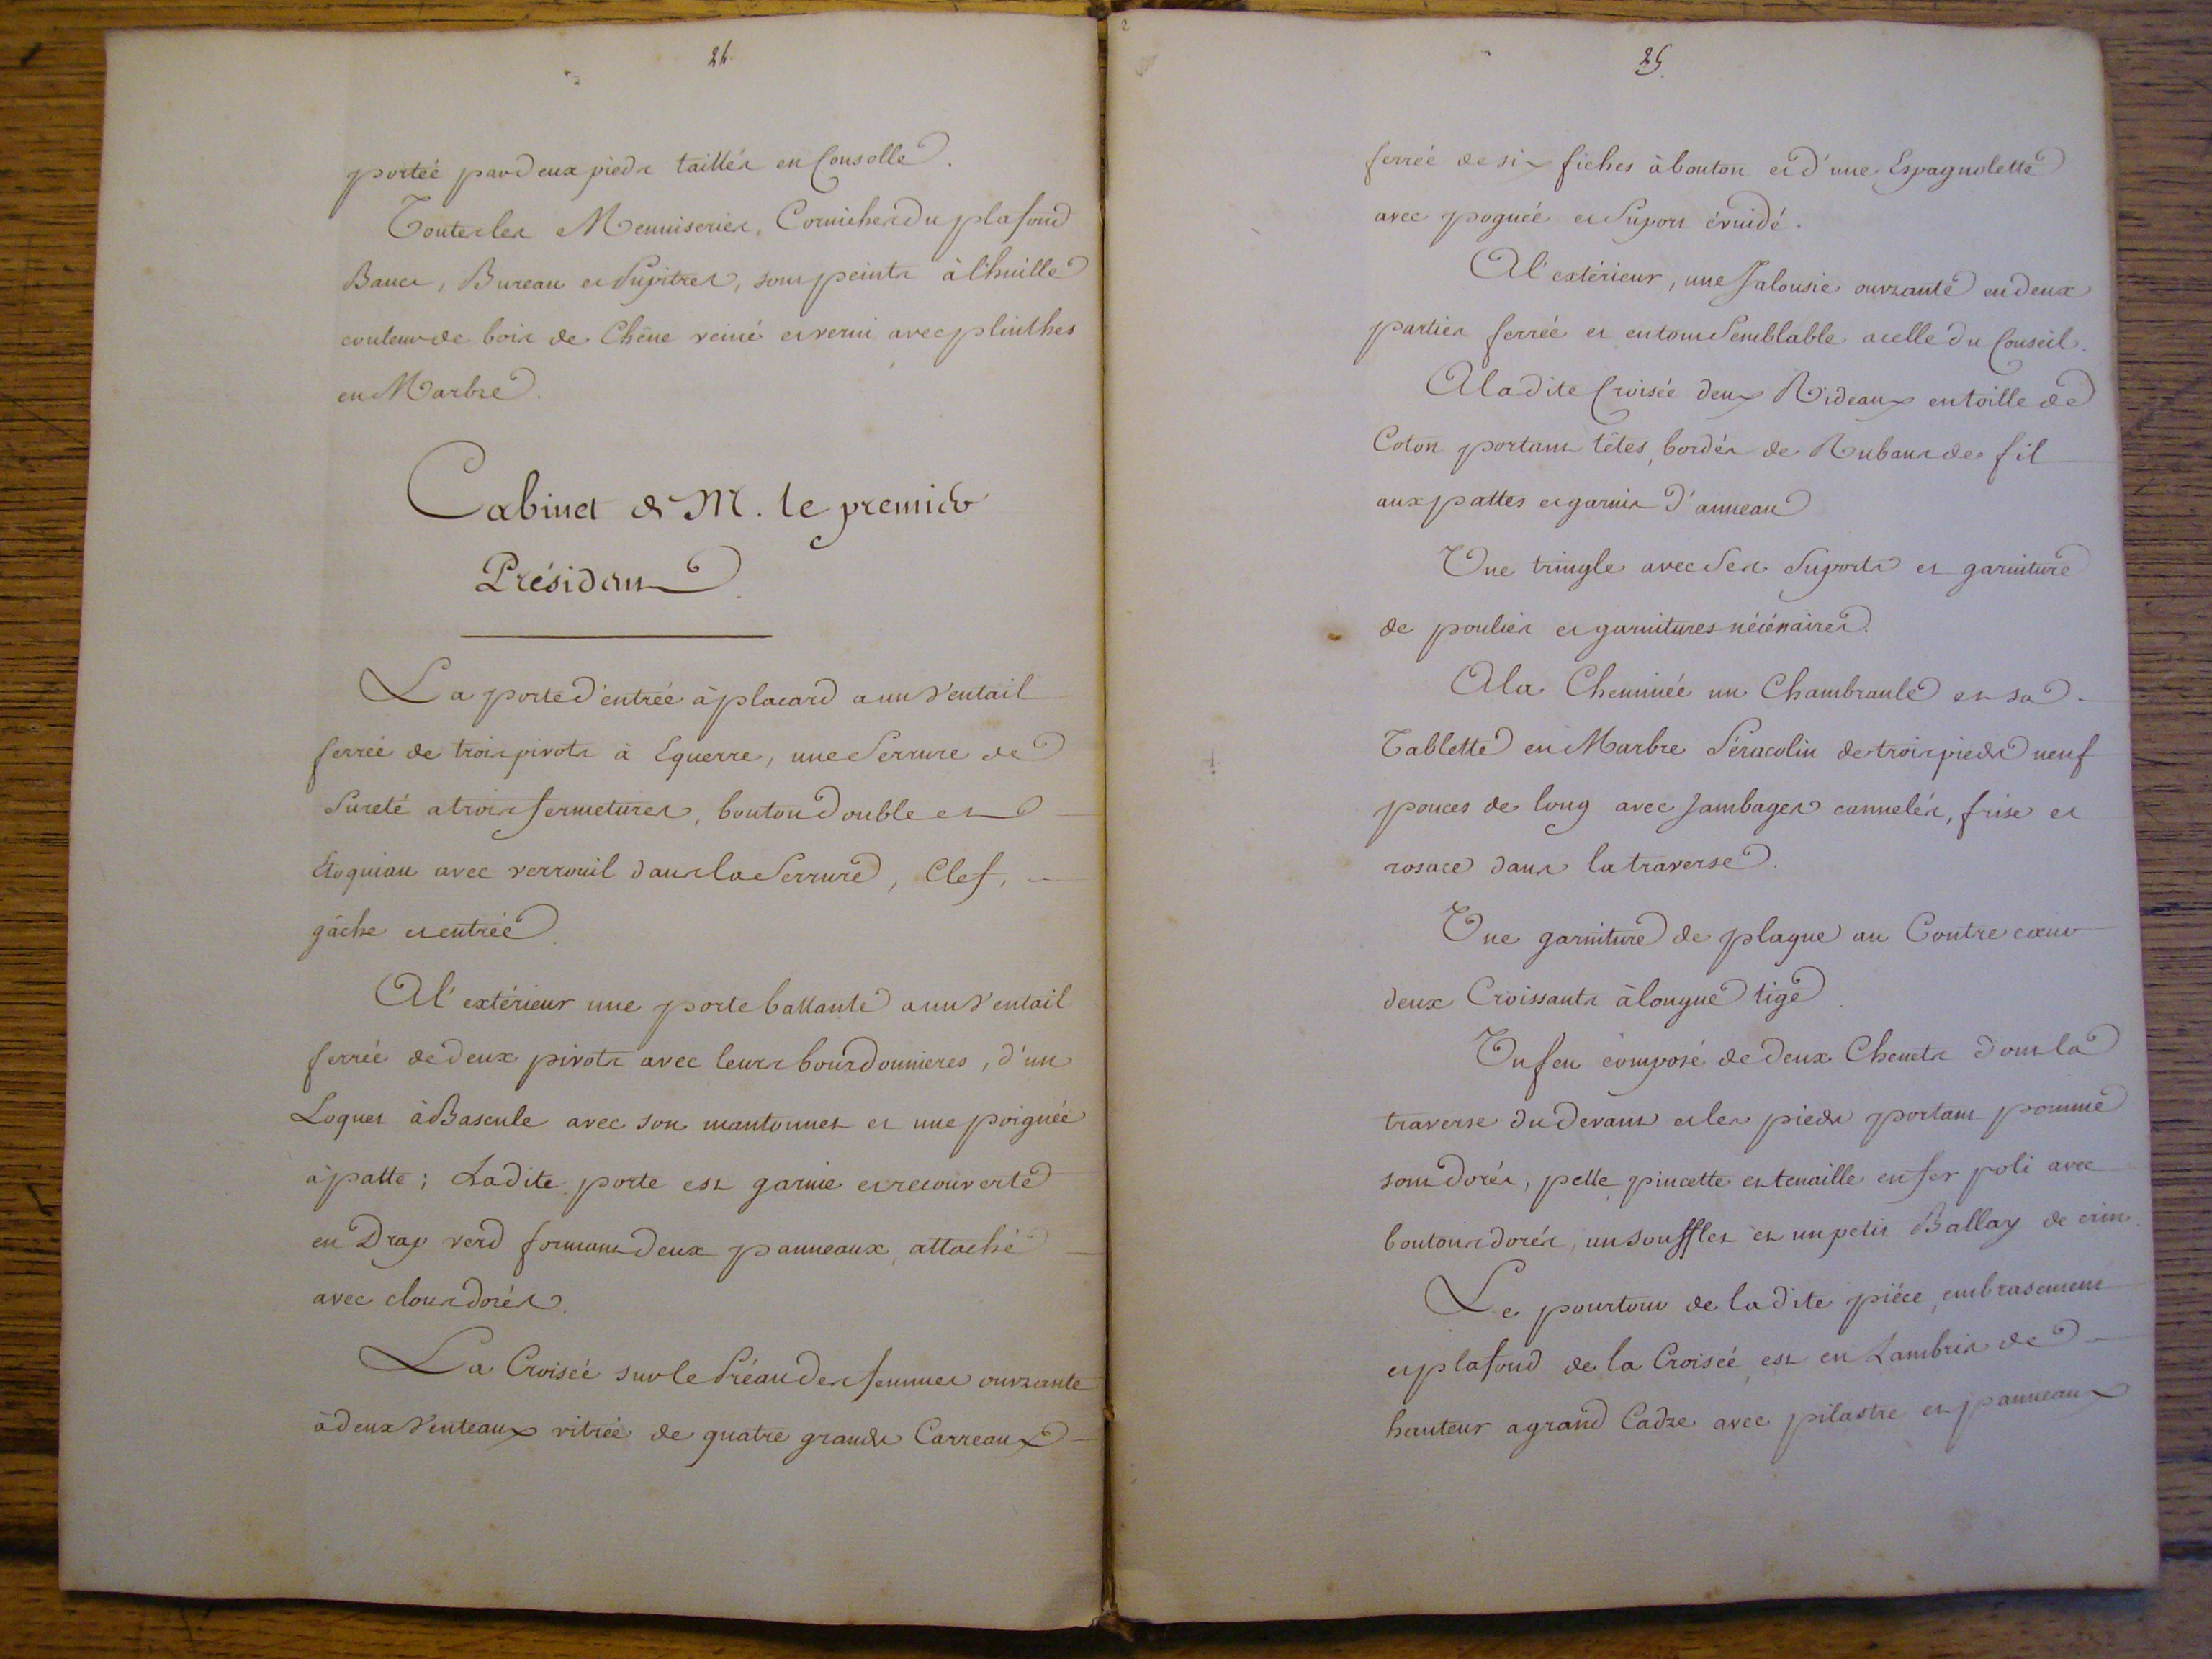 24.
portée par deux pieds taillés en Consolle.
Toutes les Menuiseries, Corniches du plafond
Bancs, Bureau et Pupitres, sont peints à l'huille
couleur de bois de Chêne veiné et verni avec plinthes
en Marbre.
Cabinet de M. le premier
Président.
La porte d'entrée à placard a un Ventail
ferrée de trois pivots à Equerre, une Serrure de
Sureté a trois fermetures, bouton Double et
Etoquiau avec verrouil dans la Serrure, Clef,
gâche et entrée.
A l'extérieur une porte battante a un Ventail
ferrée de deux pivots avec leurs bourdonnieres, d'un
Loquet à Bascule avec son mantonnet et une poignée
à patte; Ladite porte est garnie et recouverte
en Drap verd formant deux panneaux, attaché
avec clous dorés.
La Croisée sur le Préau des femmes ouvrante
à deux Venteaux vitrée de quatre grands Carreaux
25.
ferrée de six fiches à bouton et d'une Espagnolette
avec pognée et Suport évuidé.
A l'extérieur, une Jalousie ouvrante en deux
parties ferrée et en tout Semblable a celle du Conseil.
A la dite Croisée deux Rideaux en toille de
Coton portant têtes, bordés de Rubans de fil
aux pattes et garnis d'anneau
Une tringle avec Ses Suports et garniture
de poulies et garnitures nécéssaires.
A la Cheminée un Chambranle et sa
Tablette en Marbre Séracolin de trois pieds neuf
pouces de long avec Jambages cannelés, frise et
rosace dans la traverse.
Une garniture de plaque au Contre cœur
deux Croissants à longue tige.
Un feu composé de deux Chenets dont la
traverse du devant et les pieds portant pomme
sont dorés, pelle, pincette et tenaille en fer poli avec
boutons dorés, un soufflet et un petit Ballay de crin.
Le pourtour de la dite pièce, embrasement
et plafond de la Croisée est en Lambris de
hauteur a grand Cadre avec pilastre et panneaux